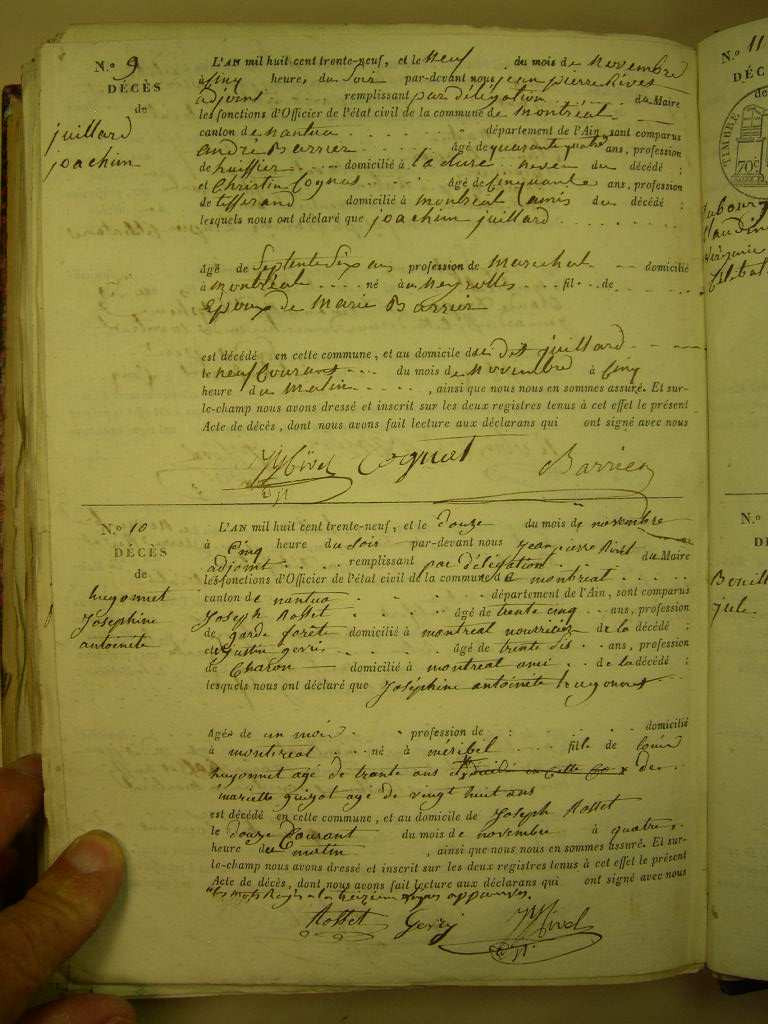 N.º 9
DÉCÈS
de
juillard
joachim
L'AN mil huit cent trente-neuf, et le Neuf du mois de Novembre
à Cinq heure, du Soir par-devant nous jean pierre Rivet
adjoint remplissant par délégation du Maire
les fonctions d'Officier de l'état civil de la commune de Montréal
canton de Nantua département de l'Ain, sont comparus
andré Barrier âgé de quarante quatre ans, profession
de huissier domicilié à la cluse neveu du décédé ;
et Christin Cognat âgé de Cinquante ans, profession
de tisserand domicilié à Montréal amis du décédé ;
lesquels nous ont déclaré que joachim juillard
âgé de Septente Six ans profession de Marechal domicilié
à Montréal né à Neyrolles fil de
Epoux de Marie Barrier
est décédé en cette commune, et au domicile du dit juillard
le neuf Courant du mois de Novembre à Cinq
heure du Matin, ainsi que nous nous en sommes assuré. Et sur-
le-champ nous avons dressé et inscrit sur les deux registres tenus à cet effet le présent
Acte de décès, dont nous avons fait lecture aux déclarans qui ont signé avec nous
Cognat Barrier
N.º 10
DÉCÈS
de
hugonnet
Joséphine
antoinete
L'AN mil huit cent trente-neuf, et le douze du mois de novembre
à Cinq heure du Soir par-devant nous Jean pierre Rivet
adjoint remplissant par délégation du Maire
les fonctions d'Officier de l'état civil de la commune de montréal
canton de nantua département de l'Ain, sont comparus
Joseph Rosset âgé de trente cinq ans, profession
de garde forêt domicilié à montreal nourricier de la décédé ;
et âgé de trente ans, profession
de Charon domicilié à montreal ami de la décédé ;
lesquels nous ont déclaré que Joséphine antoinete hugonnet
âgée de un mois profession de : domicilié
à montreal né à fille de louis
hugonnet agé de trante ans et de
mariette guizot agé de vingt huit ans
est décédé en cette commune, et au domicile de Joseph Rosset
le douze Courant du mois de novembre à quatre
heure du matin, ainsi que nous nous en sommes assuré. Et sur-
le-champ nous avons dressé et inscrit sur les deux registres tenus à cet effet le présent
Acte de décès, dont nous avons fait lecture aux déclarans qui ont signé avec nous
Rosset
N.º 11
DÉC
de
TIMBRE
70c
N.º
D
jule